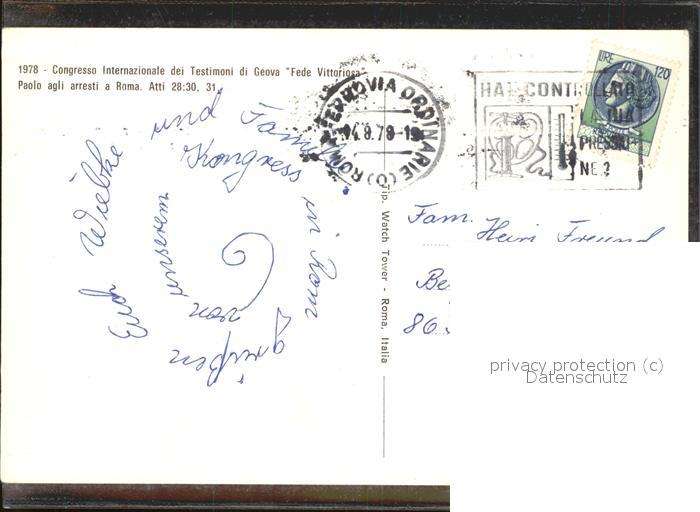 1978 - Congresso Internazionale dei Testimoni di Geova "Fede Vittoriosa"
Paolo agli arresti a Roma. Atti 28:30, 31.
ROMA FERROVIA ORDINARIE (O)
4.8.78-1
HAI CONTROLLATO
LA TUA
PRESSIO
NE?
LIRE 120
Tip. Watch Tower - Roma, Italia
Euch Wiebke und Familie
grüßen
von unserem
Kongress
in Rom
Fam. Heiri Freund
Be
86
privacy protection (c)
Datenschutz